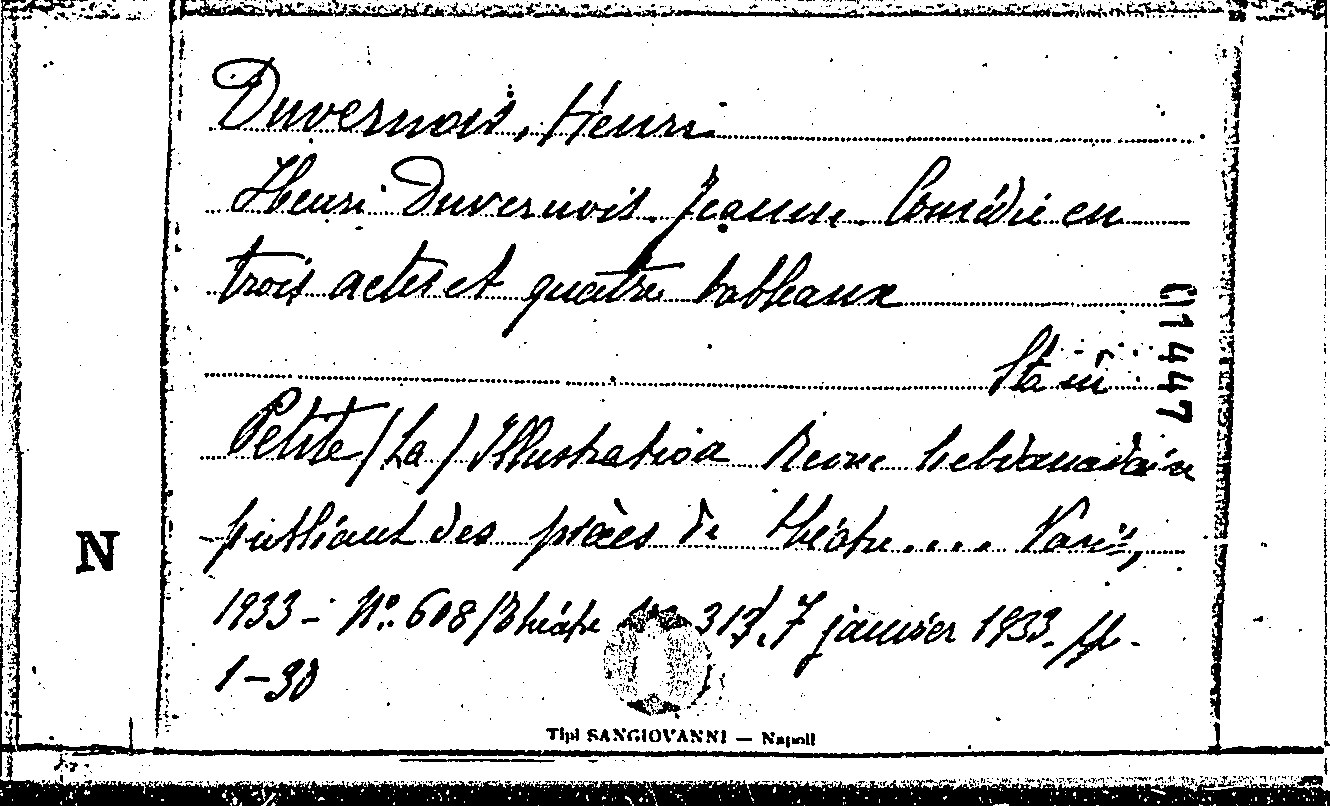 Duvernois, Henri
Henri Duvernois. Jeanne. Comédie en
trois actes et quatre tableaux
Sta in
01447
Petite (La) Illustration Revue hebdomadaire
publiant des pièces de théâtre.... Paris,
N
1933 - No. 608 (Théatre No 313). 7 janvier 1933. pp.
1-30
Tipi SANGIOVANNI — Napoli